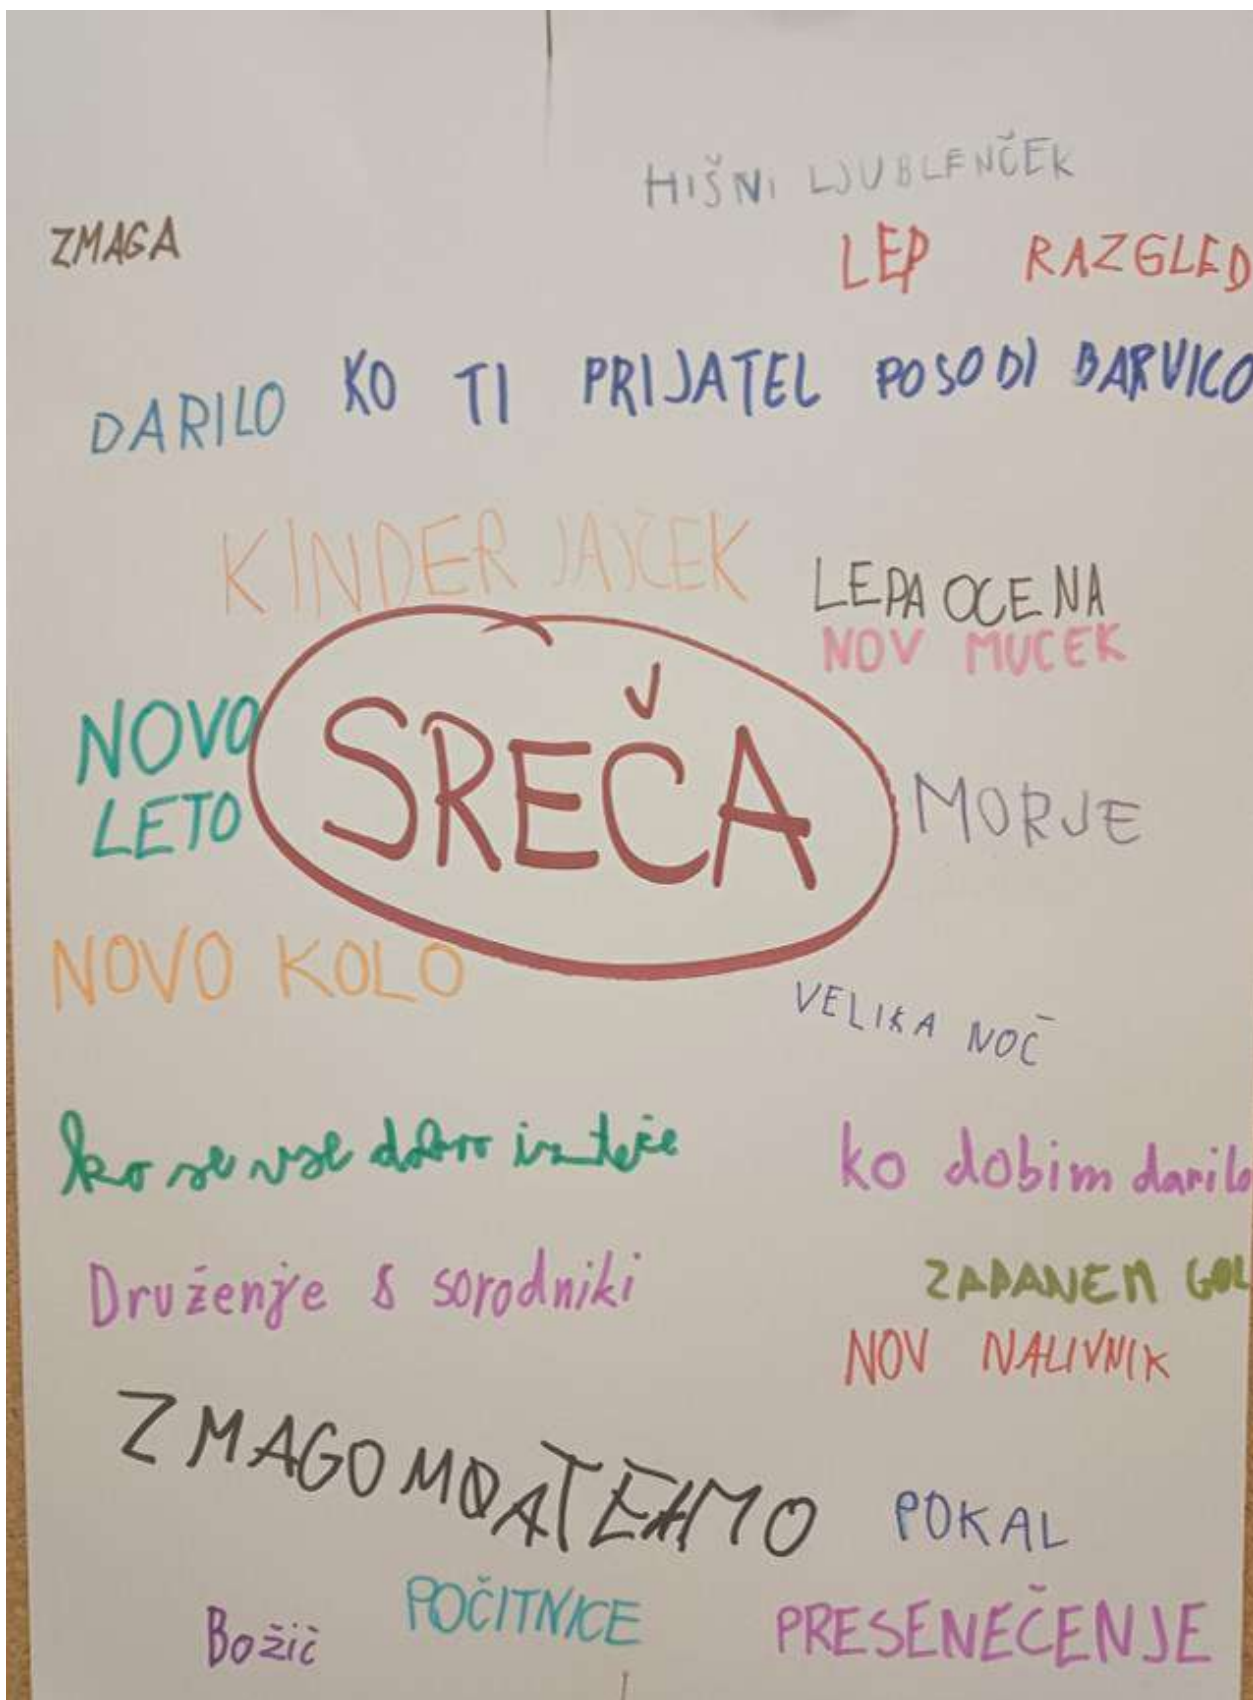 HIŠNI LJUBLENČEK
ZMAGA
LEP RAZGLED
DARILO
KO TI PRIJATEL POSODI BARVICO
KINDER JAJČEK
LEPA OCENA
NOV MUCEK
NOVO
LETO
SREČA
MORJE
NOVO KOLO
VELIKA NOČ
ko se vse dobro izteče
ko dobim darilo
Druženje s sorodniki
ZADANEM GOL
NOV NALIVNIK
POKAL
Božič
POČITNICE
PRESENEČENJE